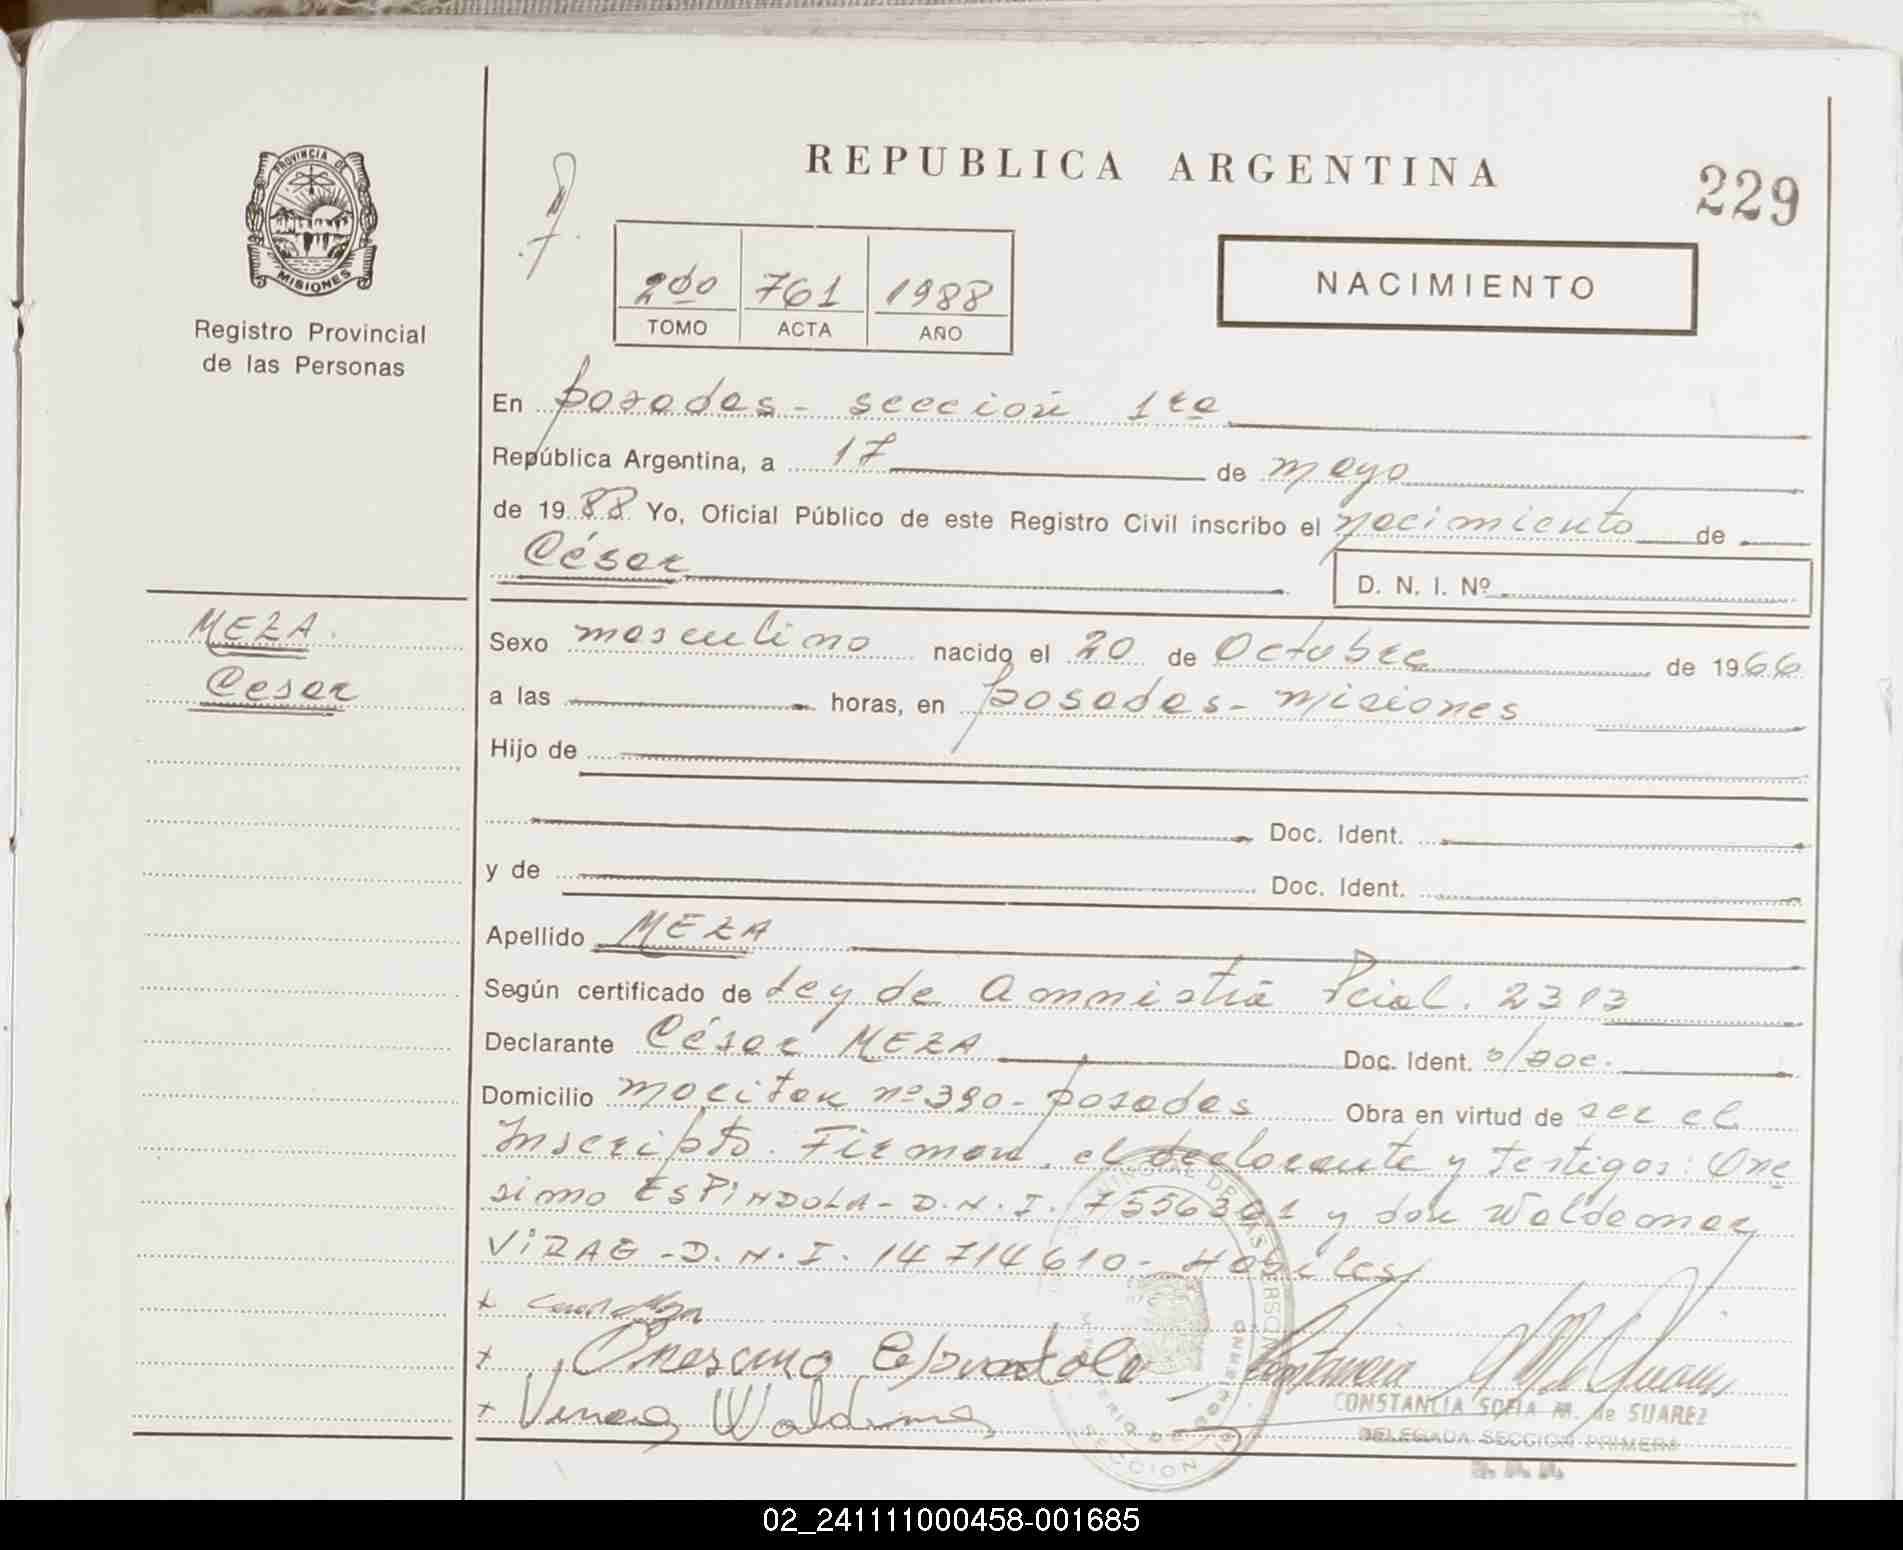 REPUBLICA ARGENTINA
229
PROVINCIA DE
MISIONES
Registro Provincial
de las Personas
2do 761 1988
TOMO ACTA AÑO
NACIMIENTO
En posadas - sección 1ra
República Argentina, a 17 de mayo
de 1988 Yo, Oficial Público de este Registro Civil inscribo el nacimiento de
César
D. N. I. Nº
MEZA
Cesar
Sexo masculino nacido el 20 de Octubre de 1966
a las horas, en posadas - misiones
Hijo de
Doc. Ident.
y de Doc. Ident.
Apellido MEZA
Según certificado de Ley de Amnistía Pcial. 2313
Declarante César MEZA Doc. Ident. s/doc.
Domicilio nº 390 - posadas Obra en virtud de ser el
Inscripto. Firman, el declarante y testigos: One
simo ESPINDOLA - D.N.I. 7556301 y don Waldemar
VIRAG - D.N.I. 14714610 - Hábiles
x
x Onesimo Espindola
x Waldemar
CONSTANCIA SOFIA M. de SUAREZ
DELEGADA SECCION PRIMERA
02_241111000458-001685